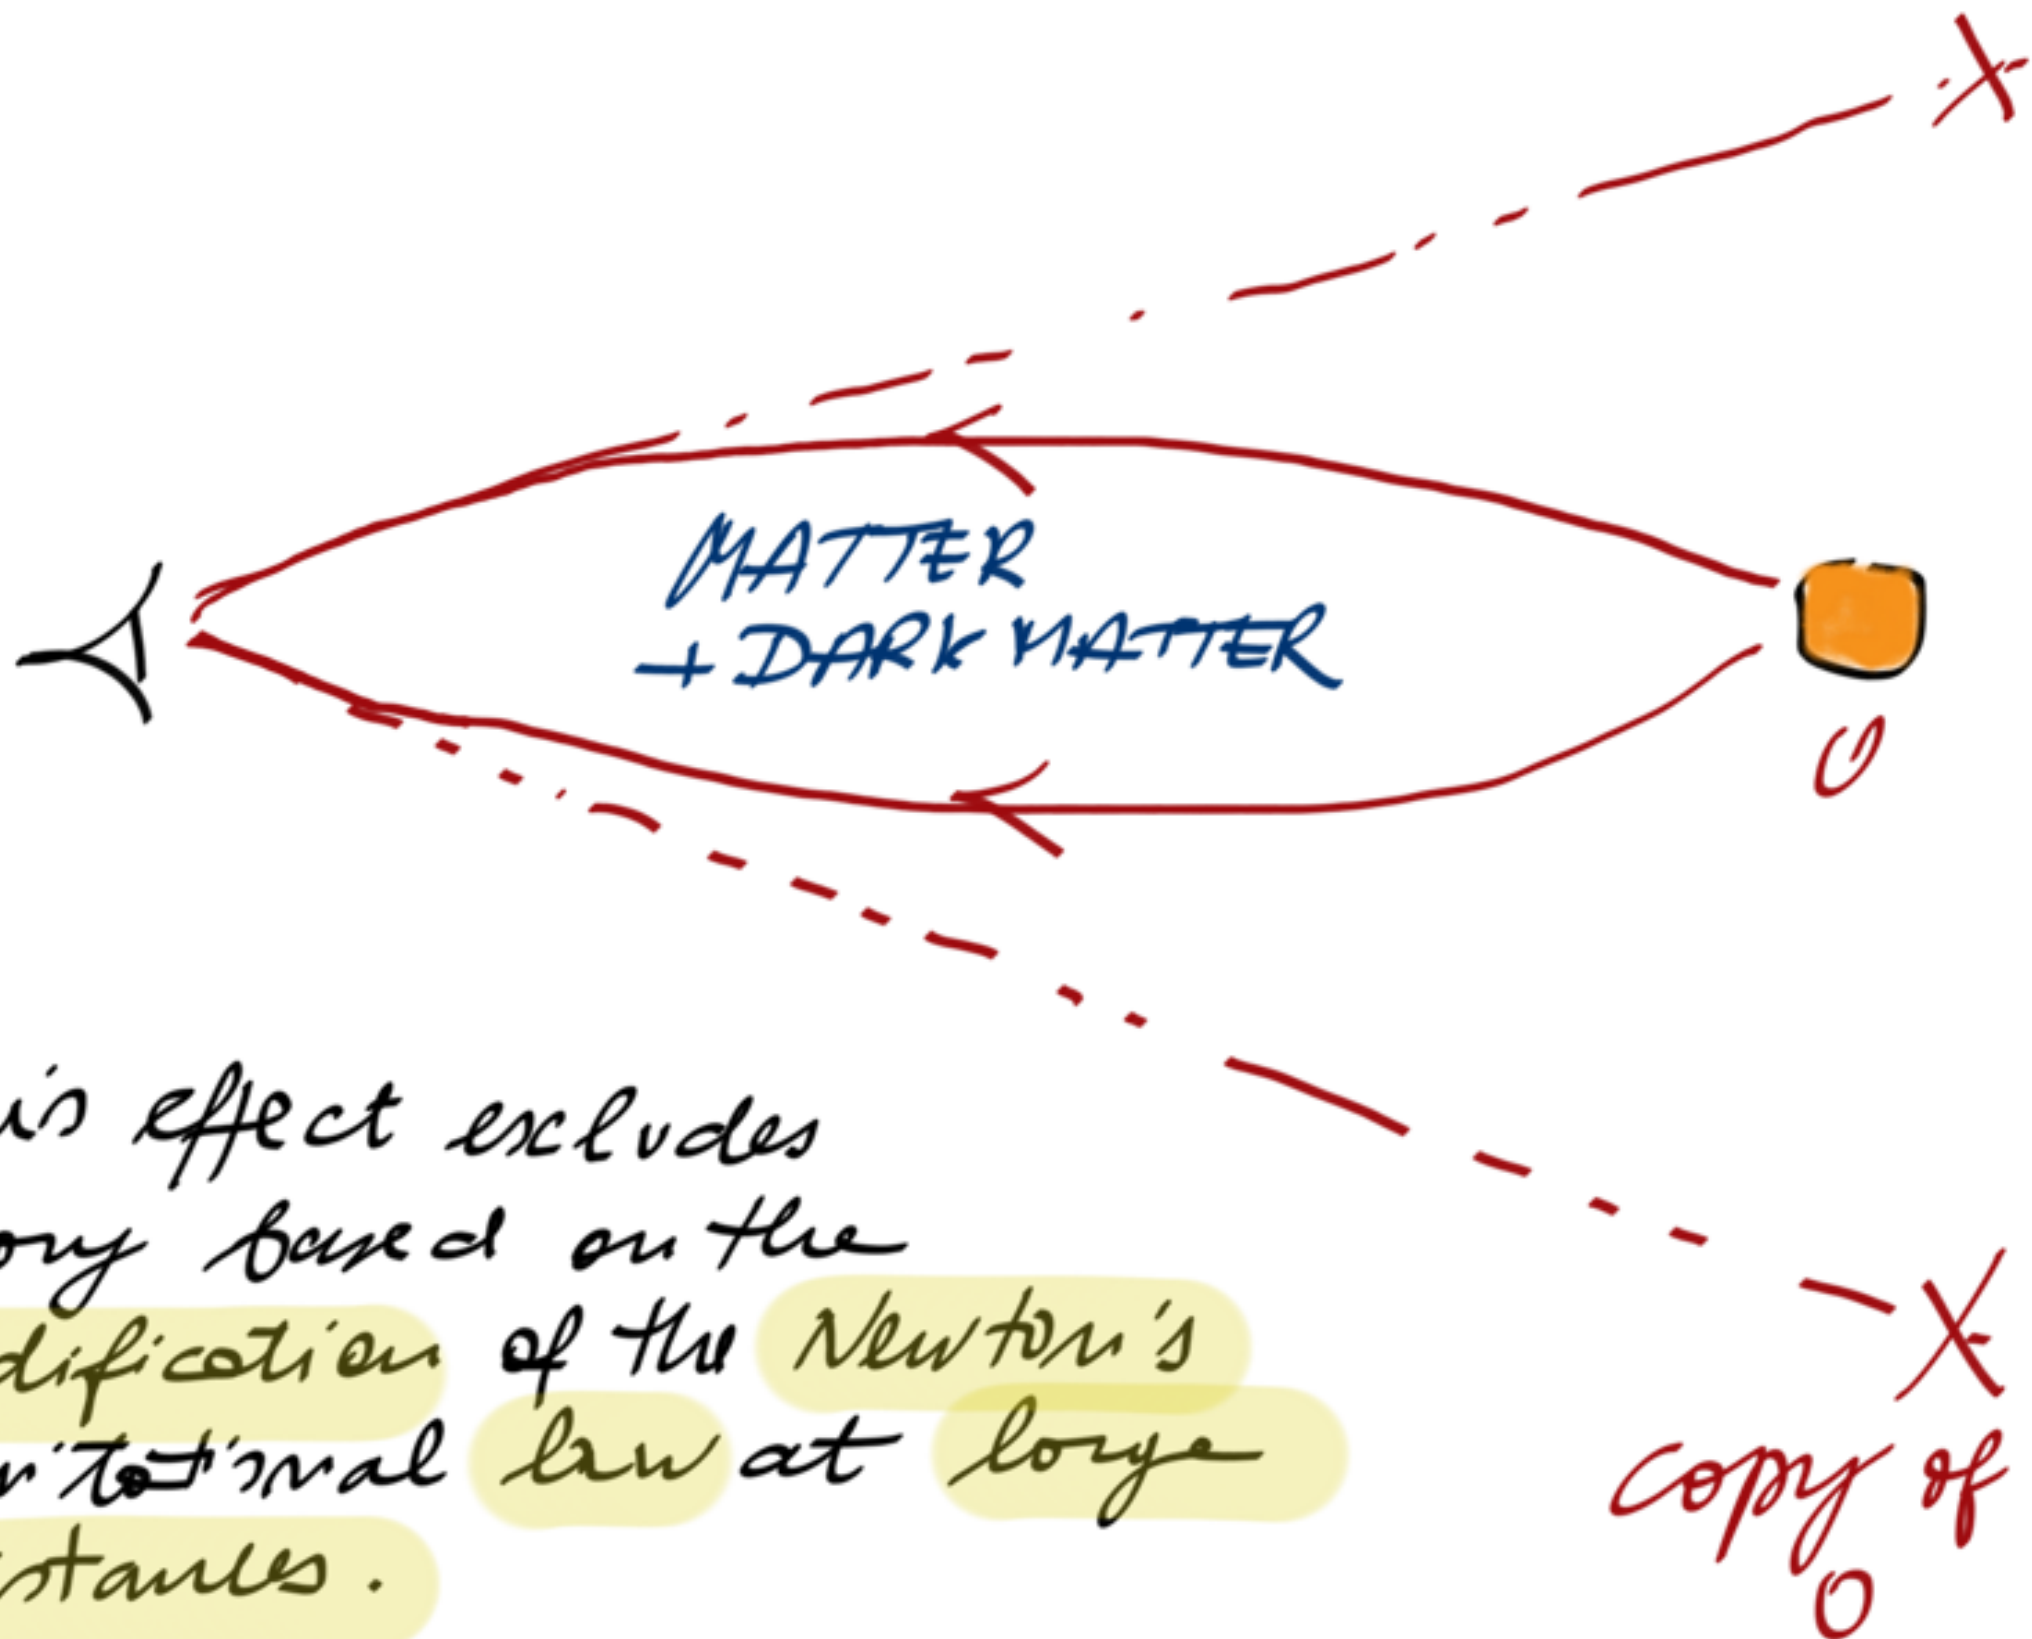 MATTER
+ DARK MATTER
O
is effect excludes
ory based on the
dification of the Newton's
vitational law at large
stances.
copy of
O